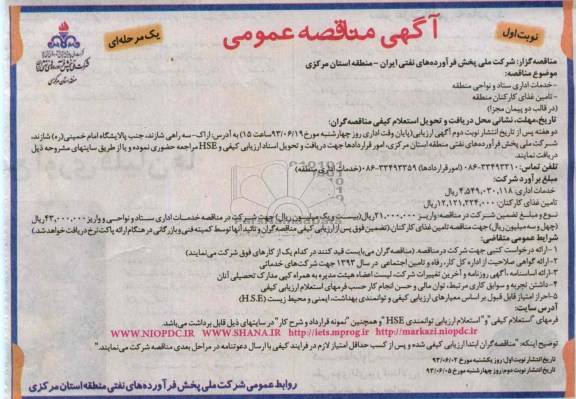 نوبت اول
آگهی مناقصه عمومی
یک مرحله‌ای
شرکت ملی پخش فرآورده‌های نفتی ایران
منطقه استان مرکزی
مناقصه گزار: شرکت ملی پخش فرآورده‌های نفتی ایران - منطقه استان مرکزی
موضوع مناقصه:
- خدمات اداری ستاد و نواحی منطقه
- تامین غذای کارکنان منطقه
(در قالب دو پیمان مجزا)
تاریخ، مهلت، نشانی محل دریافت و تحویل استعلام کیفی مناقصه‌گران:
دو هفته پس از تاریخ انتشار نوبت دوم آگهی ارزیابی (پایان وقت اداری روز چهارشنبه مورخ ۹۳/۰۶/۱۹ ساعت ۱۵) به آدرس: اراک - سه راهی شازند، جنب پالایشگاه امام خمینی (ره) شازند،
شرکت ملی پخش فرآورده‌های نفتی منطقه استان مرکزی، امور قراردادها جهت دریافت و تحویل اسناد ارزیابی کیفی و HSE مراجعه حضوری نموده و یا از طریق سایتهای مشروحه ذیل
دریافت نمایند.
تلفن تماس: ۳۳۴۹۳۳۱۰-۰۸۶ (امور قراردادها) ۳۳۴۹۳۳۵۹-۰۸۶ (خدمات اداری منطقه)
مبلغ برآورد شرکت:
خدمات اداری: ۴,۵۴۹,۰۳۰,۱۱۸ ریال
تامین غذای کارکنان: ۱۲,۱۲۱,۲۲۴,۰۰۰ ریال
نوع و مبلغ تضمین شرکت در مناقصه: واریز ۲۱,۰۰۰,۰۰۰ ریال (بیست و یک میلیون ریال) جهت شرکت در مناقصه خدمات اداری ستاد و نواحی و واریز ۴۳,۰۰۰,۰۰۰ ریال
(چهل و سه میلیون ریال) جهت مناقصه تامین غذای کارکنان (تضمین فوق پس از ارزیابی کیفی مناقصه گران و تائید آنها توسط کمیته فنی و بازرگانی در هنگام ارائه پاکت نرخ دریافت خواهد شد.)
شرایط عمومی متقاضی:
۱- ارائه درخواست کتبی جهت شرکت در مناقصه. (مناقصه گران می‌بایست قید کنند در کدام یک از کارهای فوق شرکت می‌نمایند)
۲- ارائه گواهی صلاحیت از اداره کل کار، رفاه و تامین اجتماعی در سال ۱۳۹۳ جهت شرکت‌های خدماتی
۳- ارائه اساسنامه، آگهی روزنامه و آخرین تغییرات شرکت، لیست اعضاء هیئت مدیره به همراه کپی مدارک تحصیلی آنان
۴- داشتن تجربه و سوابق کاری مرتبط، توان مالی و حسن انجام کار حسب فرمهای استعلام ارزیابی کیفی
۵- احراز امتیاز قابل قبول بر اساس معیارهای ارزیابی کیفی و توانمندی بهداشت، ایمنی و محیط زیست (H.S.E)
آدرس سایت:
فرمهای "استعلام کیفی" و "استعلام ارزیابی توانمندی HSE" و همچنین "نمونه قرارداد و شرح کار" در سایتهای ذیل قابل برداشت می‌باشد.
WWW.NIOPDC.IR WWW.SHANA.IR http://iets.mporg.ir http://markazi.niopdc.ir
توضیح اینکه: "مناقصه گران ابتدا ارزیابی کیفی شده و پس از کسب حداقل امتیاز لازم در فرایند کیفی با ارسال دعوتنامه در مراحل بعدی مناقصه شرکت می‌نمایند."
تاریخ انتشار نوبت اول: روز یکشنبه مورخ ۹۳/۰۶/۰۲
تاریخ انتشار نوبت دوم: روز چهارشنبه مورخ ۹۳/۰۶/۰۵
روابط عمومی شرکت ملی پخش فرآورده‌های نفتی منطقه استان مرکزی